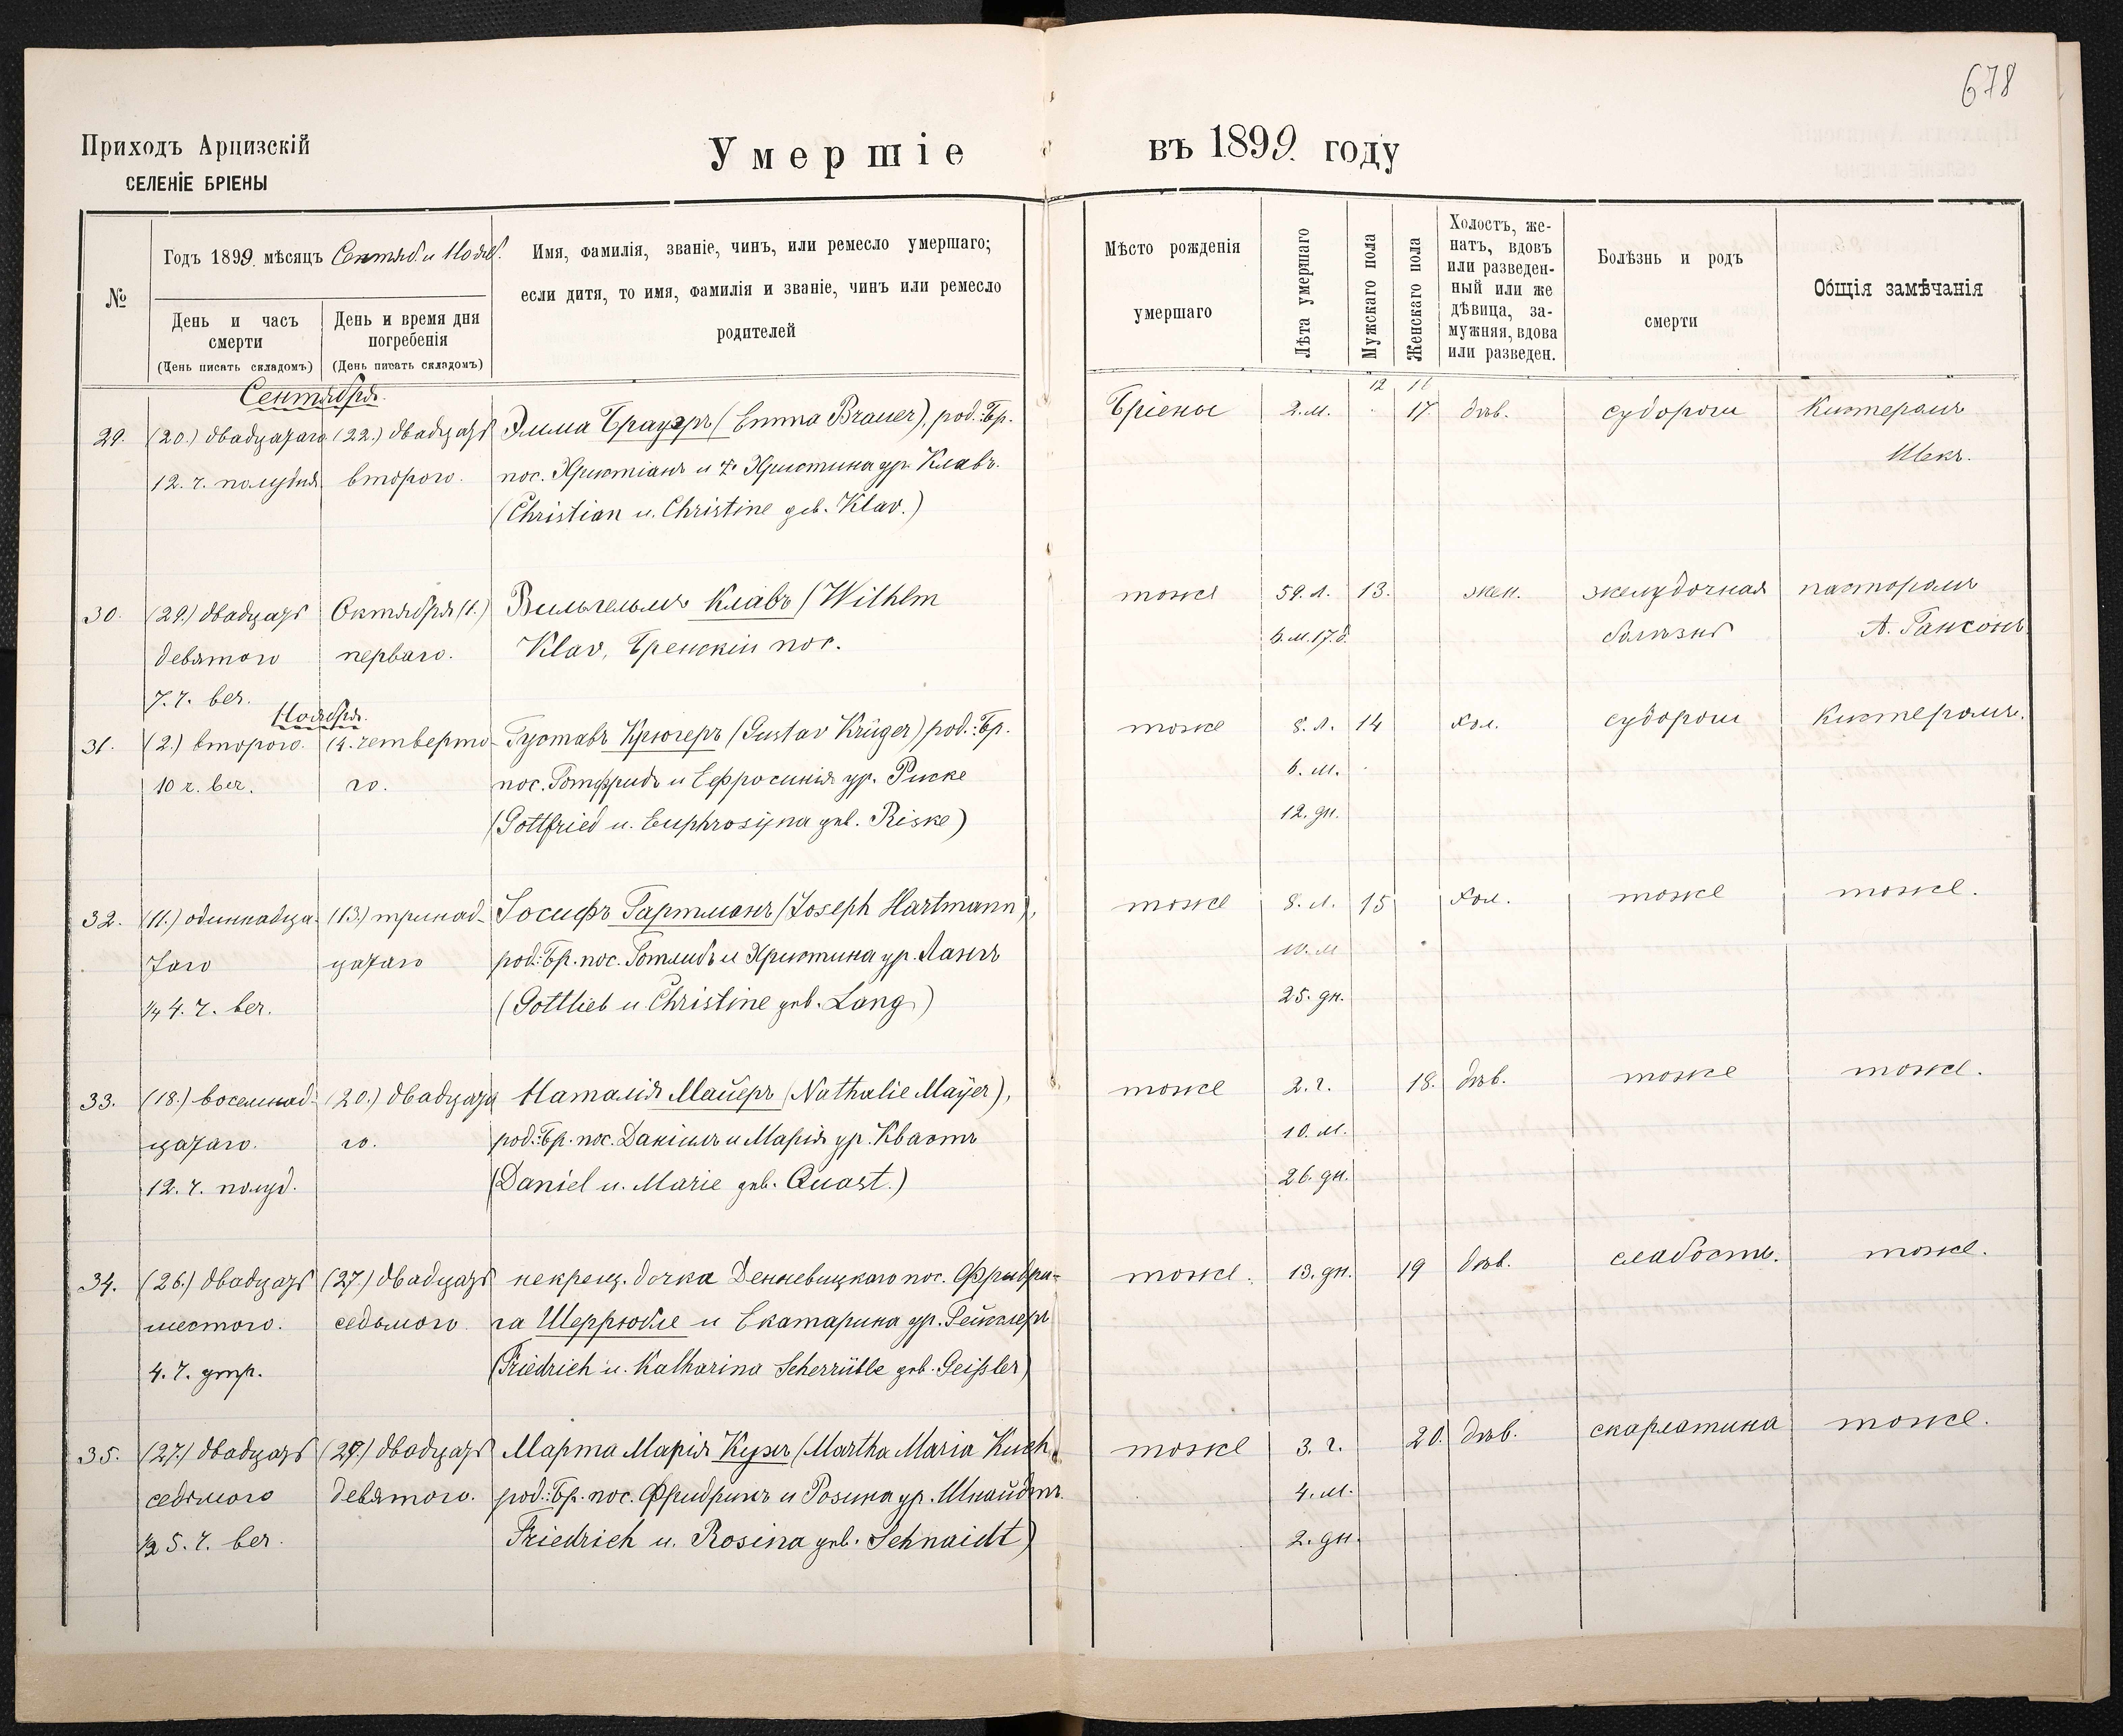 678
Приходъ Арцизскій
СЕЛЕНІЕ БРІЕНЫ
Умершіе въ 1899. году
№
Годъ 1899. мѣсяцъ Сентяб. и Нояб.
День и часъ смерти
(День писать складомъ)
День и время дня погребенія
(День писать складомъ)
Имя, фамилія, званіе, чинъ, или ремесло умершаго;
если дитя, то имя, фамилія и званіе, чинъ или ремесло
родителей
Мѣсто рожденія
умершаго
Лѣта умершаго
Мужскаго пола
Женскаго пола
Холостъ, же-
натъ, вдовъ
или разведен-
ный или же
дѣвица, за-
мужняя, вдова
или разведен.
Болѣзнь и родъ
смерти
Общія замѣчанія
Сентября.
12
29. (20.) двадцатаго (22.) двадцать Эмма Брауэръ (Emma Brauer), род.: Бр. Бріены 2. м. 17. дѣв. судороги Кистеромъ
12. ч. полудня второго. пос. Христіанъ и Христина ур. Клавъ. Шекъ.
(Christian u. Christine geb. Klav.)
30. (29.) двадцать Октября (1.) Вильгельмъ Клавъ (Wilhlm тоже 59. л. 13. жен. желудочная пасторомъ
девятого перваго. Klav, Бренскій пос. 6. м. 17. д. болѣзнь А. Гансонъ
7. ч. веч.
Ноября.
31. (2.) второго. (4. четверто- Густавъ Крюгеръ (Gustav Krüger) род.: Бр. тоже 8. л. 14 хол. судороги Кистеромъ.
10 ч. веч. го. пос. Готфридъ и Ефросинія ур. Риске 6. м.
(Gottfried u. Euphrosyna geb. Riske) 12. дн.
32. (11.) одиннадца- (13.) тринад- Іосифъ Гартманъ (Joseph Hartmann), тоже 8. л. 15 хол. тоже тоже.
таго цатаго род.: Бр. пос. Готлибъ и Христина ур. Лангъ 10. м
1/4 4. ч. веч. (Gottlieb u. Christine geb. Lang) 25. дн.
33. (18.) восемнад- (20.) двадцата Наталія Майеръ (Nathalie Mayer), тоже 2. г. 18. дѣв. тоже тоже.
цатаго. го. род.: Бр. пос. Даніилъ и Марія ур. Квастъ 10. м.
12. ч. полуд. (Daniel u. Marie geb. Quast.) 26. дн.
34. (26.) двадцать (27) двадцать некрещ. дочка Денневицкаго пос. Фридри- тоже. 13. дн. 19 дѣв. слабость. тоже.
шестого. седьмого ха Шеррюбле и Екатарина ур. Гейслеръ
4. ч. утр. (Friedrich u. Katharina Scherrüble geb. Geißler)
35. (27.) двадцать (29.) двадцать Марта Марія Кухъ (Martha Maria Kuch, тоже 3. г. 20. дѣв. скарлатина тоже.
седьмого девятого. род.: Бр. пос. Фридрихъ и Розина ур. Шнайдтъ. 4. м.
1/2 5. ч. веч. Friedrich u. Rosina geb. Schnaidt) 2. дн.